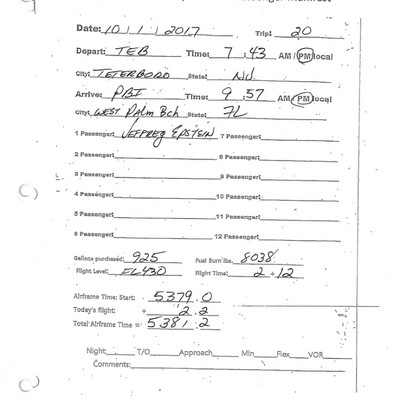 Date: 10/1/2017 Trip: 20
Depart: TEB Time: 7:43 AM/PM local
City: TETERBORO State: NJ
Arrive: PBI Time: 9:57 AM/PM local
City: WEST PALM Bch State: FL
1 Passenger: JEFFREY EPSTEIN 7 Passenger:
2 Passenger: 8 Passenger:
3 Passenger: 9 Passenger:
4 Passenger: 10 Passenger:
5 Passenger: 11 Passenger:
6 Passenger: 12 Passenger:
Gallons purchased: 925 Fuel Burn lbs. 8038
Flight Level: FL430 Flight Time: 2+12
Airframe Time: Start: 5379.0
Today's flight: + 2.2
Total Airframe Time = 5381.2
Night: T/O Approach Min Flex VOR
Comments: